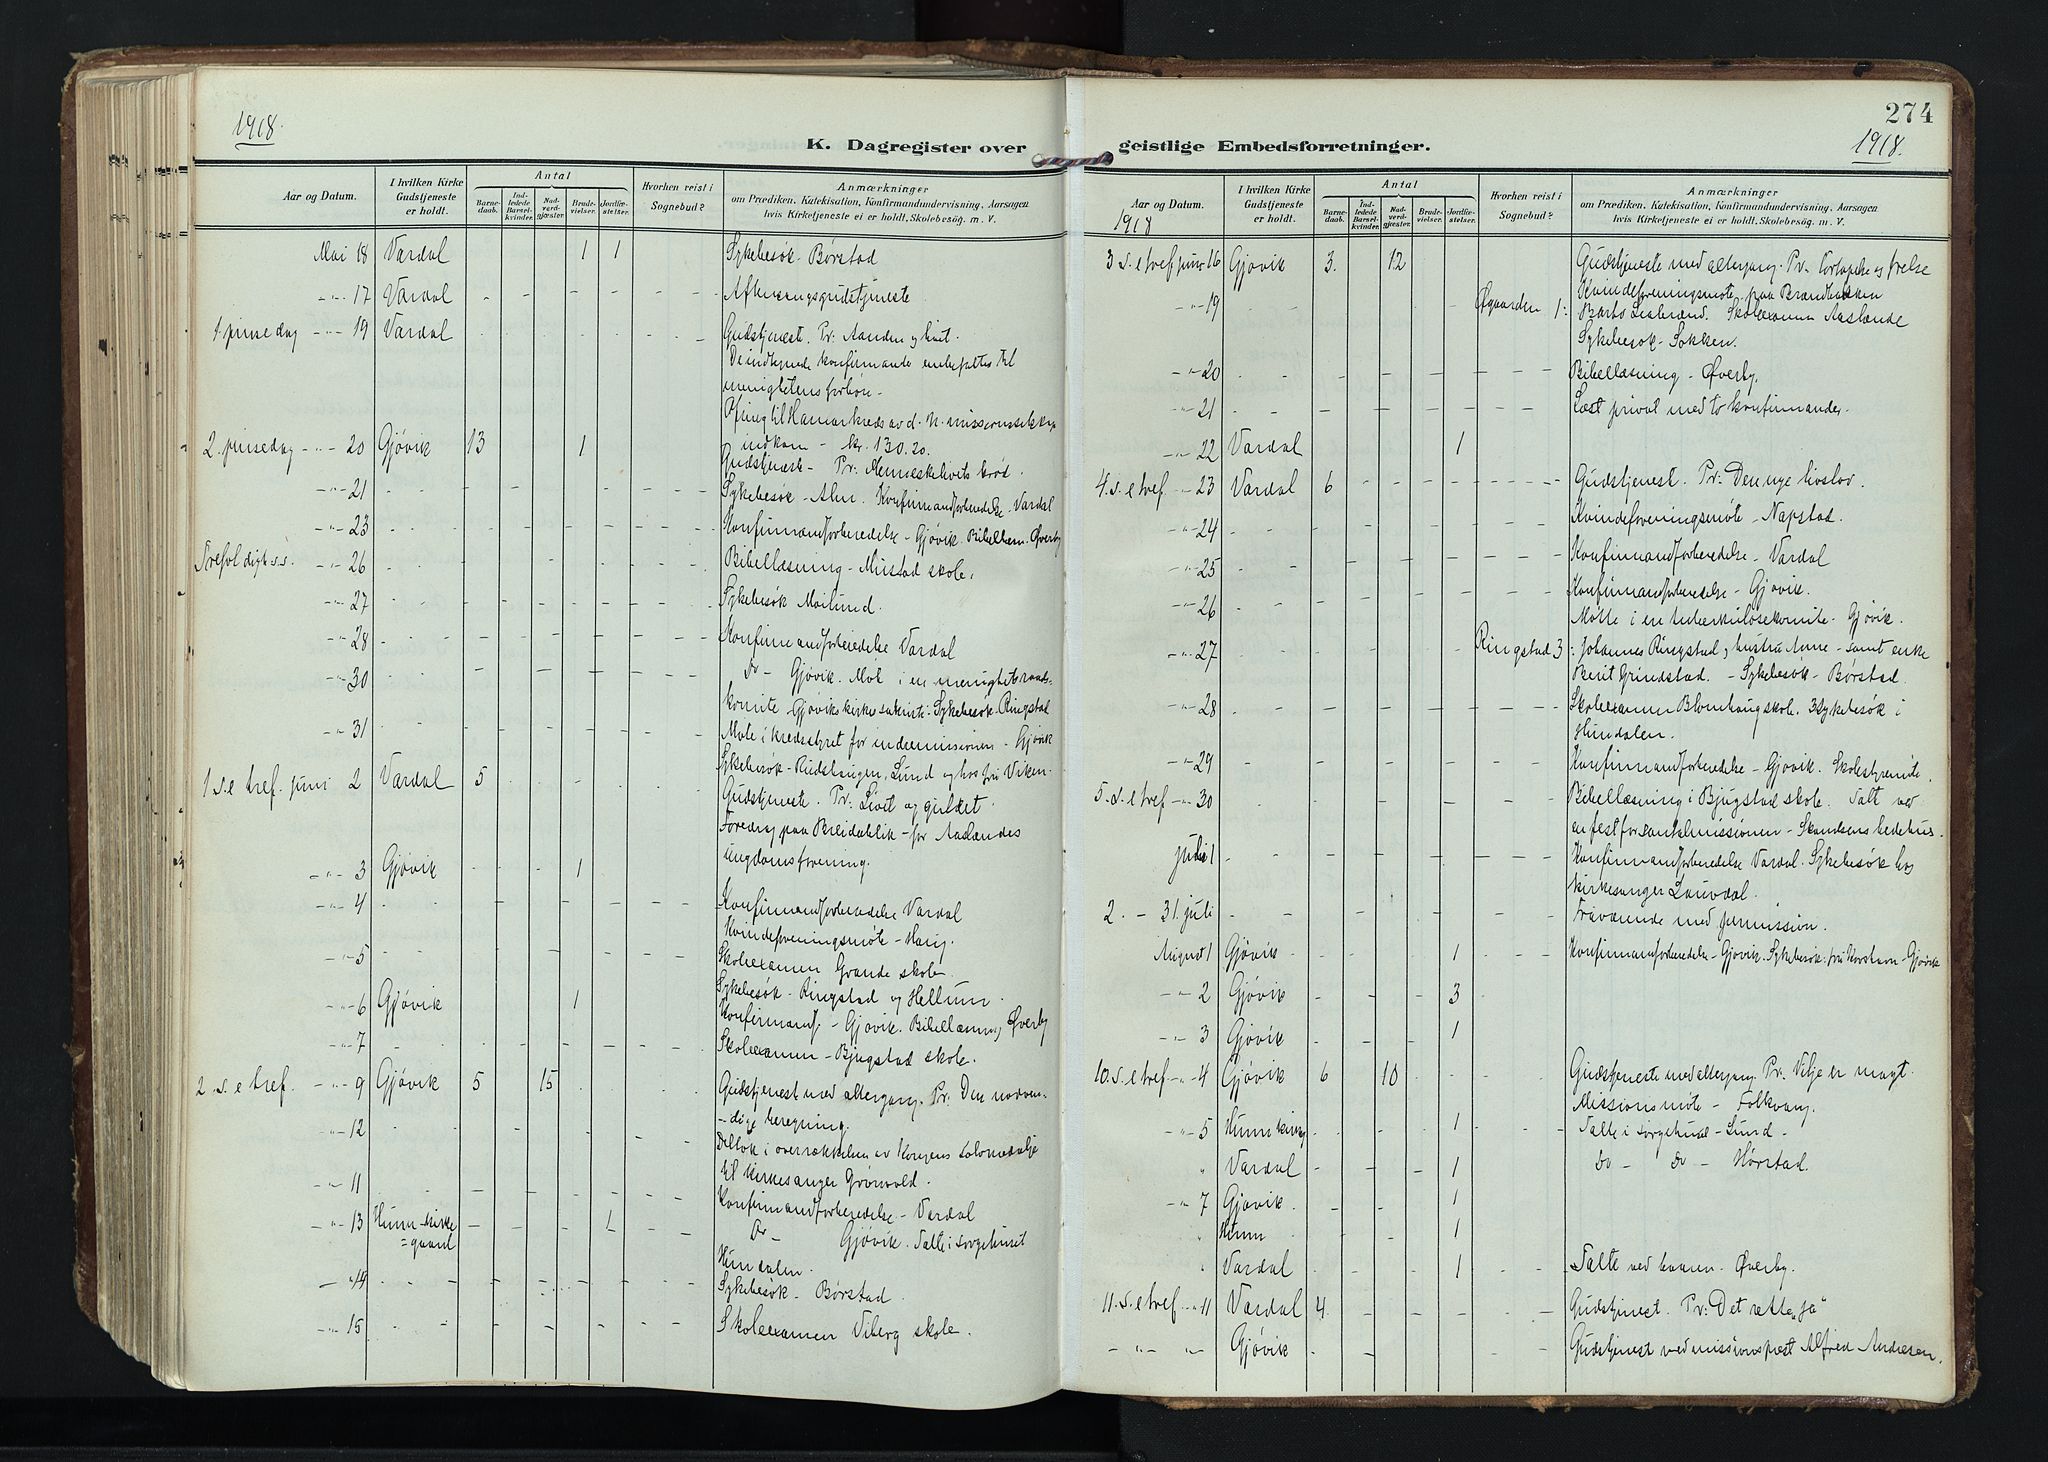 1918.
K. Dagregister over
Aar og Datum. I hvilken Kirke Gudstjeneste er holdt. Antal Barnedaab. Indledede Barselkvinder. Nadverdgjæster. Brudevielser. Jordfæstelser. Hvorhen reist i Sognebud? Anmærkninger om Prædiken, Katekisation, Konfirmandundervisning, Aarsagen hvis Kirketjeneste ei er holdt, Skolebesøg. m. V.
Mai 18 Vardal 1 1 Sykebesøk - Børstad
" 17 Vardal Aftensangsgudstjeneste
1 pinsedag " 19 Vardal Gudstjeneste. Pr: Aanden og livet.
De indtegnede konfirmander anbefaltes til
menighetens forbøn -
Ofring til Hamar kreds av d. N. missionsselskap
indkom - kr. 130.20.
2. pinsedag " 20 Gjøvik 13 1 Gudstjeneste - Pr: Menneskelivets brød.
" 21 Sykebesøk - Alm. Konfirmandforberedelse - Vardal
" 23 Konfirmandforberedelse - Gjøvik. Bibellæsn. Øverby
Trefoldigh.s.s. " 26 Bibellæsning - Mustad skole.
" 27 Sykebesøk Mailund.
" 28 Konfirmandforberedelse Vardal
" 30 Do - Gjøvik. Møte i en menighetsraads-
komite - Gjøviks kirkes sakristi: Sykebesøk. Ringstad
" 31 Møte i kredsstyret for indremissionen - Gjøvik
Sykebesøk - Rudshaugen, Lund og hos fru Viken.
1 s. e tref. juni 2 Vardal 5 Gudstjeneste. Pr: Livet og guldet.
Foredrag paa Breidablik - for Aaslandes
ungdomsforening.
" 3 Gjøvik 1
" 4 Konfirmandforberedelse Vardal
Kvindeforeningsmøte - Haug.
" 5 Skoleexamen Grande skole.
Sykebesøk - Ringstad og Hellum.
" 6 Gjøvik 1 Konfirmandf. - Gjøvik. Bibellæsning Øverby
" 7 Skoleexamen - Bjugstad skole.
2 s. e tref. " 9 Gjøvik 5 15 Gudstjenest med altergang. Pr: Den nødven-
dige beregning.
" 12 Deltok i overrækkelsen av Kongens sølvmedalje
til kirkesanger Grønvold.
" 11 Konfirmandforberedelse - Vardal
" 13 Hunn kirke= gaard 1 Do - Gjøvik. Talte i sørgehuset
Hundalen.
" 14 Sykebesøk - Børstad.
" 15 Skoleexamen Viberg skole.
274
1918.
geistlige Embedsforretninger.
Aar og Datum. I hvilken Kirke Gudstjeneste er holdt. Antal Barnedaab. Indledede Barselkvinder. Nadverdgjæster. Brudevielser. Jordfæstelser. Hvorhen reist i Sognebud? Anmærkninger om Prædiken, Katekisation, Konfirmandundervisning, Aarsagen hvis Kirketjeneste ei er holdt, Skolebesøg. m. V.
1918
3 s. e tref juni 16 Gjøvik 3. 12 Gudstjeneste med altergang. Pr: Fortapelse og frelse
Kvindeforeningsmøte paa Brandbakken
" 19 Øgaarden 1: Skoleexamen Aaslande
Sykebesøk - Sokken.
" 20 Bibellæsning - Øverby.
" 21 Læst privat med to konfirmander.
" 22 Vardal 1
4. s. e tref. " 23 Vardal 6 Gudstjenest. Pr: Den nye livslov.
" 24 Kvindeforeningsmøte - Napstad.
" 25 Konfirmandforberedelse - Vardal
" 26 Konfirmandforberedelse - Gjøvik.
Møtte i en tuberkulosekomite - Gjøvik.
" 27 Ringstad 3 : Johannes Ringstad og hustru Anne - samt enke
Berit Grindstad. - Sykebesøk - Børstad.
" 28 Skoleexamen Blomhaug skole. 3 sykebesøk i
Hundalen.
" 29 Konfirmandforberedelse - Gjøvik. Skolestyremøte.
5. s. e tref " 30 Bibellæsning i Bjugstad skole. Talt ved
en fest for santalmissionen - Skandsens bedehus.
juli 1 Konfirmandforberedelse Vardal. Sykebesøk hos
kirkesanger Lauvdal.
2. - 31. juli Fraværende med permission.
August 1 Gjøvik 1 Konfirmandforberedelse - Gjøvik. Sykebesøk: fru Karlsen - Gjøvik
" 2 Gjøvik 3
" 3 Gjøvik 1
10. s. e tref " 4 Gjøvik 6 10 Gudstjeneste med altergang. Pr. Vilje er magt.
Missionsmøte - Folkvang.
" 5 Hunn kirkeg 1 Talte i sørgehuset - Lund -
" Vardal 1 Do - Do - Hørstad.
" 7 Gjøvik. 1
" Hunn 1
" Vardal 1 Talte ved baaren. Øverby.
11. s. e tref. " 11 Vardal 4. Gudstjenest. Pr: Det rette "ja"
" " " Gjøvik Gudstjenest ved missionsprest Alfred Andresen.